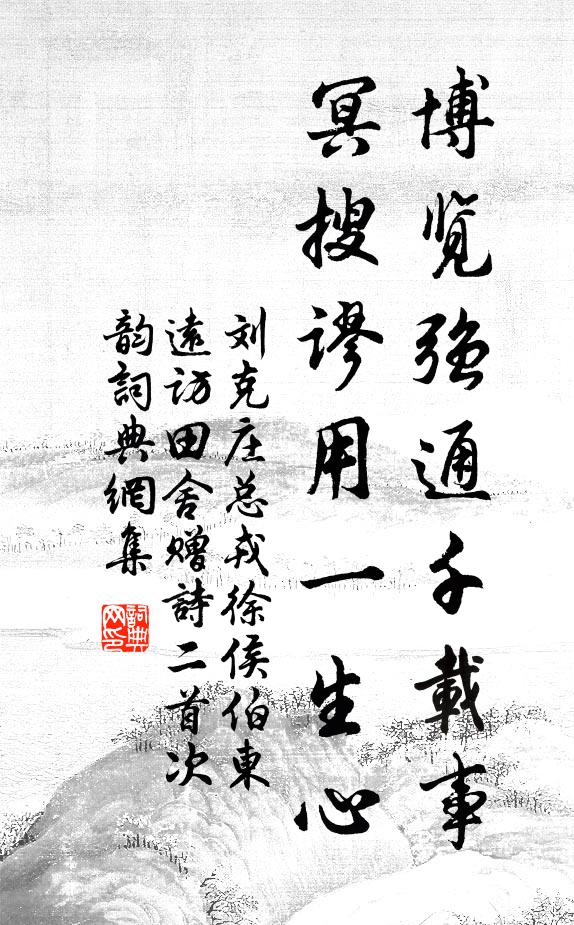 博览强通千載事
冥搜谬用一生心
刘克庄总戎徐侯伯東
遠访田舍赠詩二首次
韵詞典網集
詞典
网印